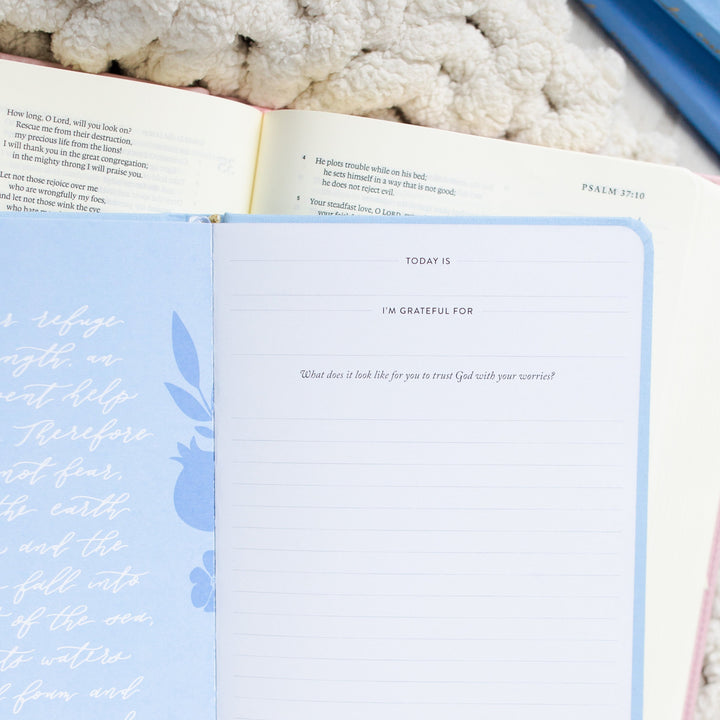 How long, O Lord, will you look on?
Rescue me from their destruction,
my precious life from the lions!
I will thank you in the great congregation;
in the mighty throng I will praise you.
Let not those rejoice over me
who are wrongfully my foes,
and let not those wink the eye
who hate
4 He plots trouble while on his bed;
he sets himself in a way that is not good;
he does not reject evil.
5 Your steadfast love, O LORD,
PSALM 37:10
35
TODAY IS
I'M GRATEFUL FOR
What does it look like for you to trust God with your worries?
refuge
an
help
Therefore
not fear,
the earth
and the
fall into
of the sea,
waters
foam and